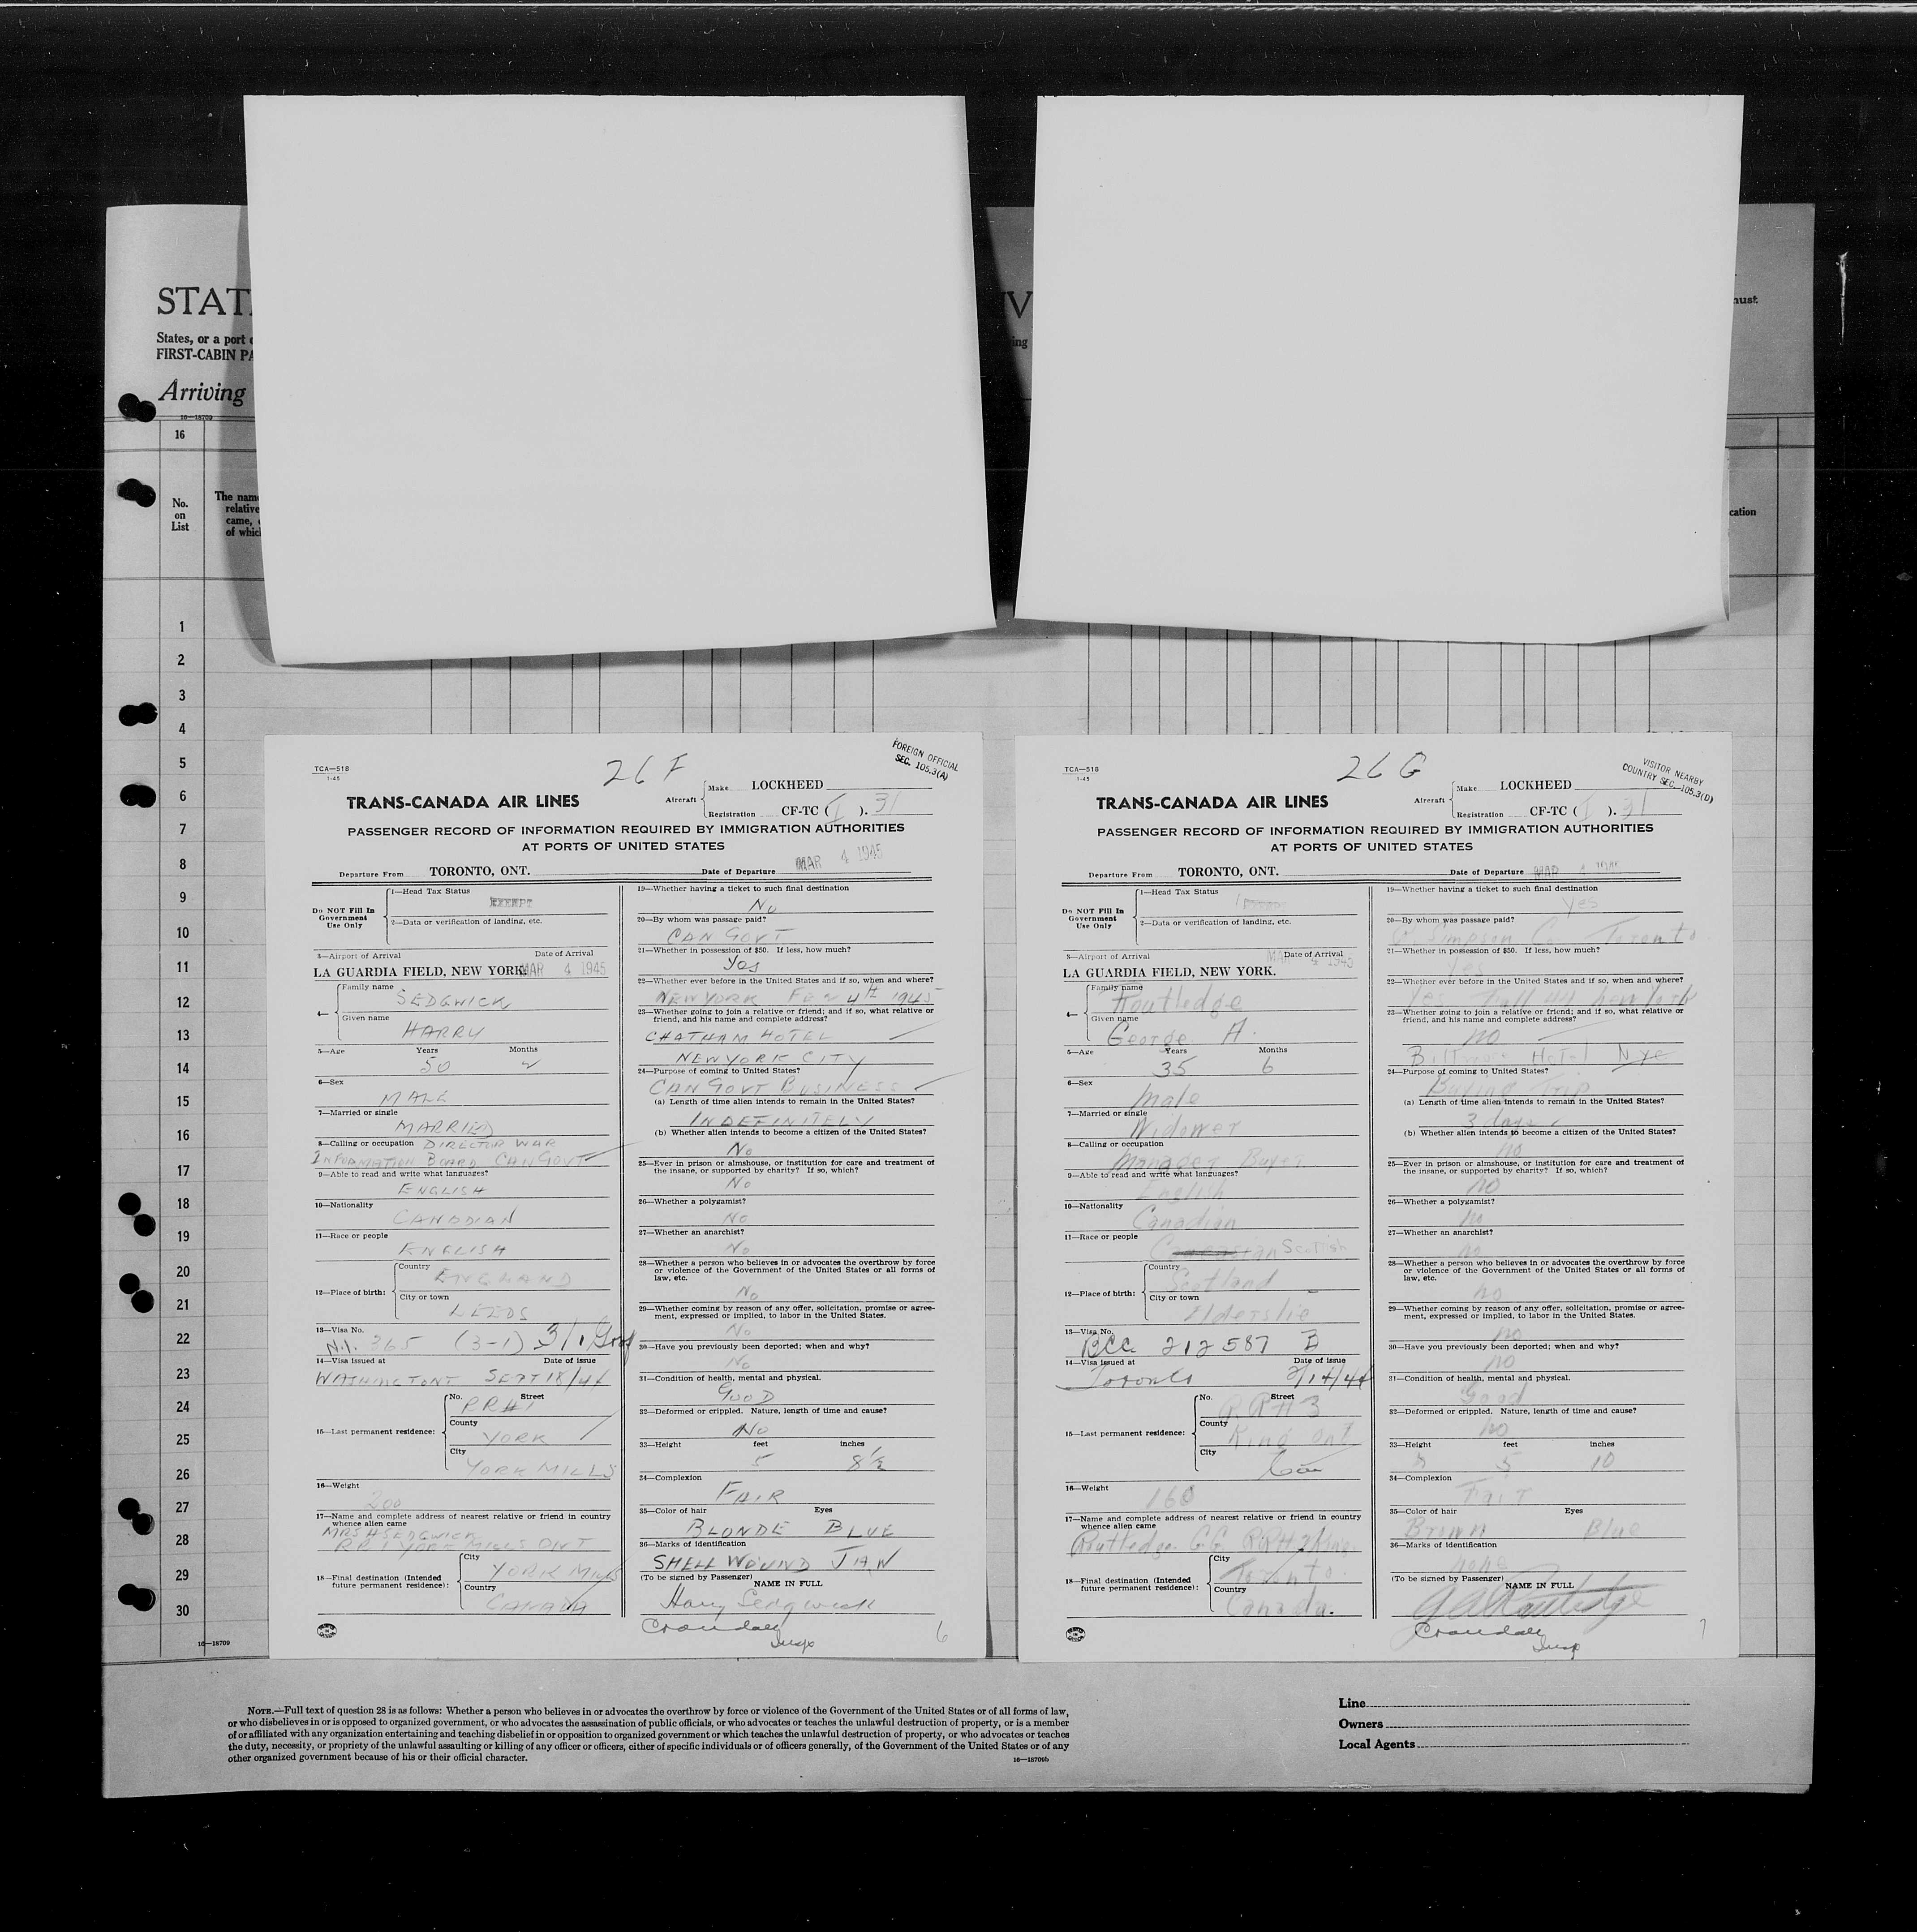 STAT
States, or a port
FIRST-CABIN PA
Arriving
16—18709
16
No.
on
List
The name
relative
came,
of whic
IV
ing
must
cation
1
2
3
4
5
6
7
8
9
10
11
12
13
14
15
16
17
18
19
20
21
22
23
24
25
26
27
28
29
30
16—18709
TCA—518
1-45
26 F
FOREIGN OFFICIAL
SEC. 105.3(A)
TRANS-CANADA AIR LINES
Aircraft
Make LOCKHEED
Registration CF-TC ( ). 31
PASSENGER RECORD OF INFORMATION REQUIRED BY IMMIGRATION AUTHORITIES
AT PORTS OF UNITED STATES
Departure From TORONTO, ONT. Date of Departure MAR 4 1945
Do NOT Fill In
Government
Use Only
1—Head Tax Status
EXEMPT
2—Data or verification of landing, etc.
3—Airport of Arrival Date of Arrival
LA GUARDIA FIELD, NEW YORK. MAR 4 1945
4—
Family name
SEDGWICK
Given name
HARRY
5—Age Years Months
50
6—Sex
MALE
7—Married or single
MARRIED
8—Calling or occupation DIRECTOR WAR
INFORMATION BOARD CAN GOVT
9—Able to read and write what languages?
ENGLISH
10—Nationality
CANADIAN
11—Race or people
ENGLISH
12—Place of birth:
Country
ENGLAND
City or town
LEEDS
13—Visa No.
N.I. 365 (3-1) 3/1
14—Visa issued at Date of issue
WASHINGTON SEPT 18/44
15—Last permanent residence:
No. Street
RR#1
County
YORK
City
YORK MILLS
16—Weight
200
17—Name and complete address of nearest relative or friend in country
whence alien came
MRS H SEDGWICK
RR 1 YORK MILLS ONT
18—Final destination (Intended
future permanent residence):
City
YORK MILLS
Country
CANADA
19—Whether having a ticket to such final destination
No
20—By whom was passage paid?
CAN GOVT
21—Whether in possession of $50. If less, how much?
Yes
22—Whether ever before in the United States and if so, when and where?
NEW YORK FEB 4th 1945
23—Whether going to join a relative or friend; and if so, what relative or
friend, and his name and complete address?
CHATHAM HOTEL
NEW YORK CITY
24—Purpose of coming to United States?
CAN GOVT BUSINESS
(a) Length of time alien intends to remain in the United States?
INDEFINITELY
(b) Whether alien intends to become a citizen of the United States?
No
25—Ever in prison or almshouse, or institution for care and treatment of
the insane, or supported by charity? If so, which?
No
26—Whether a polygamist?
No
27—Whether an anarchist?
No
28—Whether a person who believes in or advocates the overthrow by force
or violence of the Government of the United States or all forms of
law, etc.
No
29—Whether coming by reason of any offer, solicitation, promise or agree-
ment, expressed or implied, to labor in the United States.
No
30—Have you previously been deported; when and why?
No
31—Condition of health, mental and physical.
GOOD
32—Deformed or crippled. Nature, length of time and cause?
No
33—Height feet inches
5 8½
34—Complexion
FAIR
35—Color of hair Eyes
BLONDE BLUE
36—Marks of identification
SHELL WOUND
(To be signed by Passenger)
NAME IN FULL
Harry Sedgwick
Crandall
Insp
6
TCA—518
1-45
26 G
VISITOR NEARBY
COUNTRY SEC. 105.3(D)
TRANS-CANADA AIR LINES
Aircraft
Make LOCKHEED
Registration CF-TC ( ). 31
PASSENGER RECORD OF INFORMATION REQUIRED BY IMMIGRATION AUTHORITIES
AT PORTS OF UNITED STATES
Departure From TORONTO, ONT. Date of Departure MAR 4 1945
Do NOT Fill In
Government
Use Only
1—Head Tax Status
EXEMPT
2—Data or verification of landing, etc.
3—Airport of Arrival Date of Arrival
LA GUARDIA FIELD, NEW YORK. MAR 4 1945
4—
Family name
Routledge
Given name
George A.
5—Age Years Months
35 6
6—Sex
Male
7—Married or single
Widower
8—Calling or occupation
Manager Buyer
9—Able to read and write what languages?
English
10—Nationality
Canadian
11—Race or people
Scottish
12—Place of birth:
Country
Scotland
City or town
Elderslie
13—Visa No.
BCC 212587
14—Visa issued at Date of issue
Toronto 2/14/44
15—Last permanent residence:
No. Street
RR#3
County
King Ont
City
Can
16—Weight
160
17—Name and complete address of nearest relative or friend in country
whence alien came
Routledge GG RR#2 King
18—Final destination (Intended
future permanent residence):
City
Toronto
Country
Canada.
19—Whether having a ticket to such final destination
Yes
20—By whom was passage paid?
Simpson Co Toronto
21—Whether in possession of $50. If less, how much?
Yes
22—Whether ever before in the United States and if so, when and where?
Yes Fall 44 New York
23—Whether going to join a relative or friend; and if so, what relative or
friend, and his name and complete address?
no
Biltmore Hotel Nyc
24—Purpose of coming to United States?
Buying Trip
(a) Length of time alien intends to remain in the United States?
3 days
(b) Whether alien intends to become a citizen of the United States?
no
25—Ever in prison or almshouse, or institution for care and treatment of
the insane, or supported by charity? If so, which?
no
26—Whether a polygamist?
no
27—Whether an anarchist?
no
28—Whether a person who believes in or advocates the overthrow by force
or violence of the Government of the United States or all forms of
law, etc.
no
29—Whether coming by reason of any offer, solicitation, promise or agree-
ment, expressed or implied, to labor in the United States.
no
30—Have you previously been deported; when and why?
no
31—Condition of health, mental and physical.
Good
32—Deformed or crippled. Nature, length of time and cause?
no
33—Height feet inches
5 10
34—Complexion
Fair
35—Color of hair Eyes
Brown Blue
36—Marks of identification
none
(To be signed by Passenger)
NAME IN FULL
G A Routledge
Crandall
Insp
7
NOTE.—Full text of question 28 is as follows: Whether a person who believes in or advocates the overthrow by force or violence of the Government of the United States or of all forms of law,
or who disbelieves in or is opposed to organized government, or who advocates the assassination of public officials, or who advocates or teaches the unlawful destruction of property, or is a member
of or affiliated with any organization entertaining and teaching disbelief in or opposition to organized government or which teaches the unlawful destruction of property, or who advocates or teaches
the duty, necessity, or propriety of the unlawful assaulting or killing of any officer or officers, either of specific individuals or of officers generally, of the Government of the United States or of any
other organized government because of his or their official character.
16—18709b
Line
Owners
Local Agents